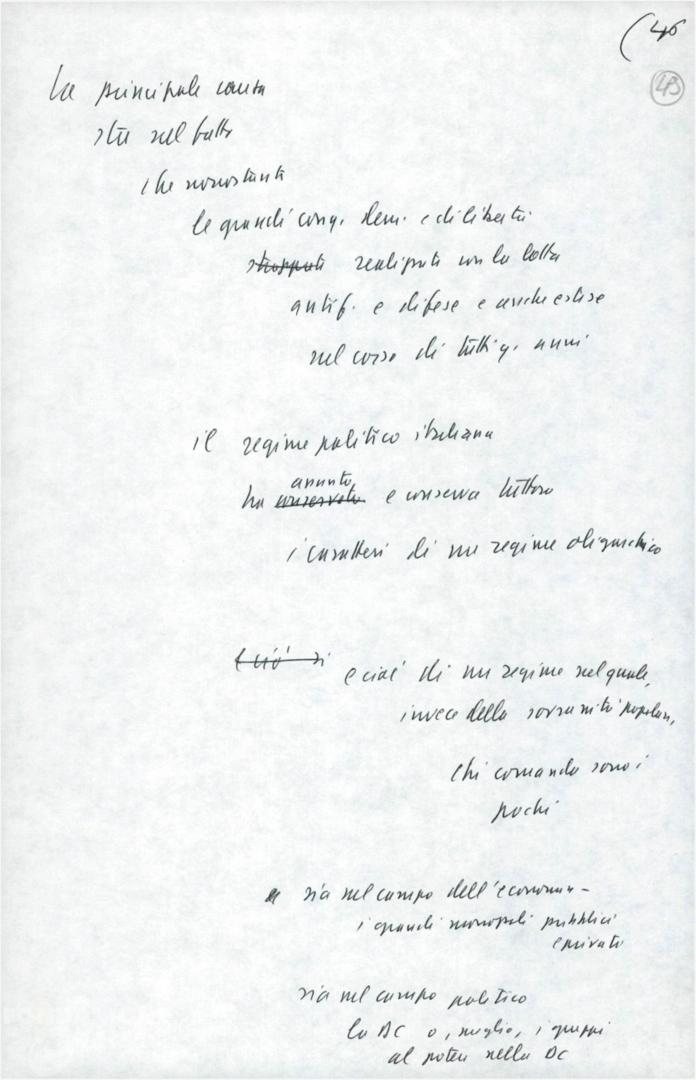 (46
43
La principale causa
sta nel fatto
che nonostante
le grandi conq. dem. e di libertà
strappate realizzate con la lotta
antif. e difese e anche estese
nel corso di tutti q. anni
il regime politico italiano
assunto
ha conservato e conserva tuttora
i caratteri di un regime oligarchico
E ciò si e cioè di un regime nel quale,
invece della sovranità popolare,
chi comanda sono i
pochi
sia nel campo dell'economia -
i grandi monopoli pubblici
e privati
sia nel campo politico
la DC o, meglio, i gruppi
al potere nella DC